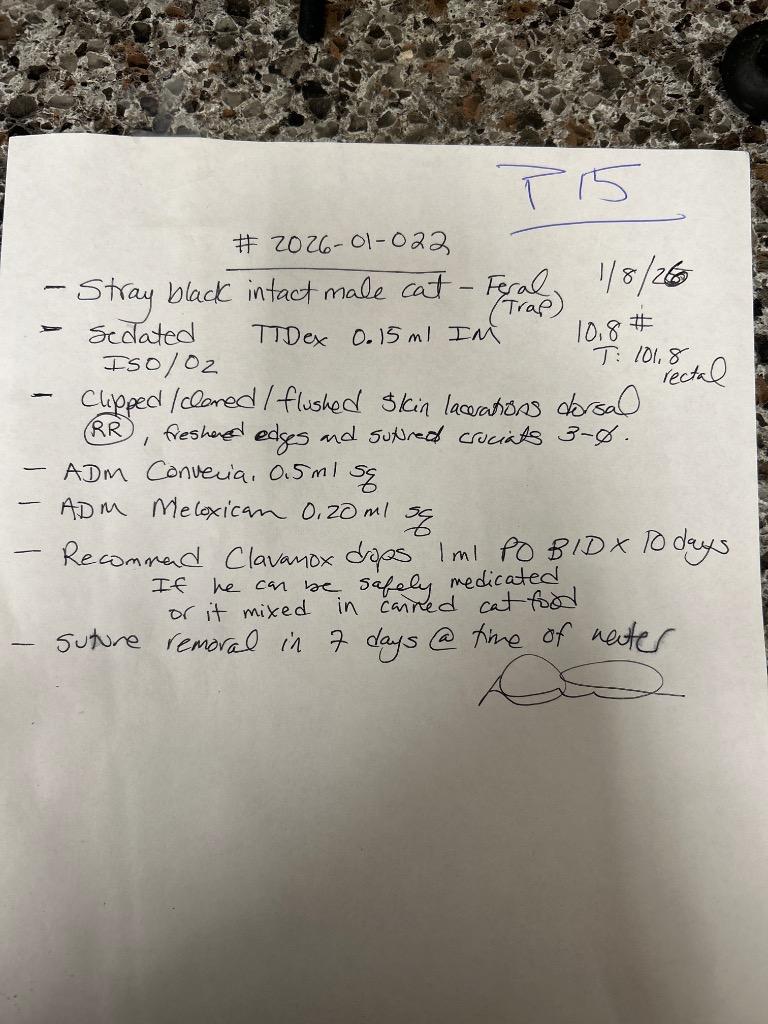 P 15
# 2026-01-022
1/8/26
- Stray black intact male cat - Feral
(Trap)
- Sedated TTDex 0.15 ml IM
10.8 #
ISO/O2
T: 101.8
rectal
- Clipped/cleaned/flushed skin lacerations dorsal
RR, freshened edges and sutured cruciats 3-0.
- ADM Convenia. 0.5 ml sq
- ADM Meloxican 0.20 ml sq
- Recommend Clavamox drops 1 ml PO BID x 10 days
If he can be safely medicated
or it mixed in canned cat food
- Suture removal in 7 days @ time of neuter